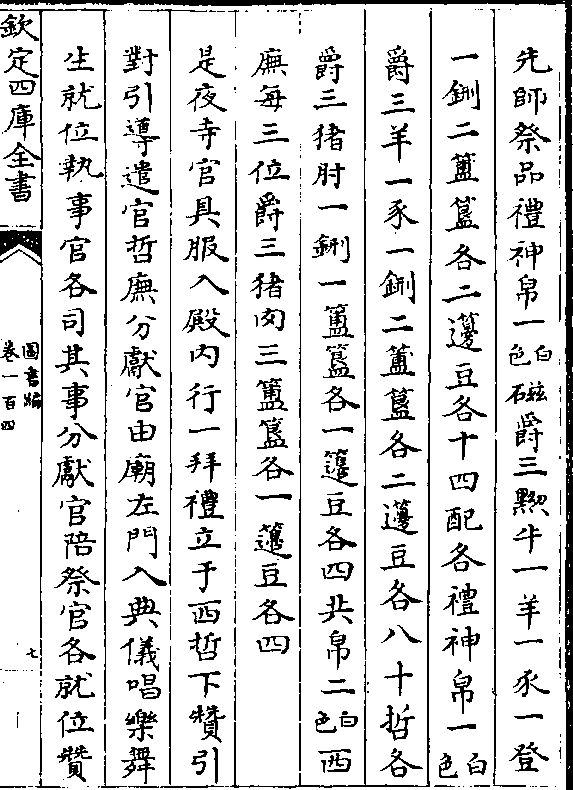 先師祭品禮神帛一白色磁爵三牛一羊一豕一登
一鉶二簠簋各二籩豆各十四配各禮神帛一白色
爵三羊一豕一鉶二簠簋各二籩豆各八十哲各
爵三猪肘一鉶一簠簋各一籩豆各四共帛二白色西
廡每三位爵三猪肉三簠簋各一籩豆各四
是夜寺官具服入殿内行一拜禮立于西哲下贊引
對引導遣官哲廡分獻官由廟左門入典儀唱樂舞
生就位執事官各司其事分獻官陪祭官各就位贊
欽定四庫全書
圖書編
卷一百四
七